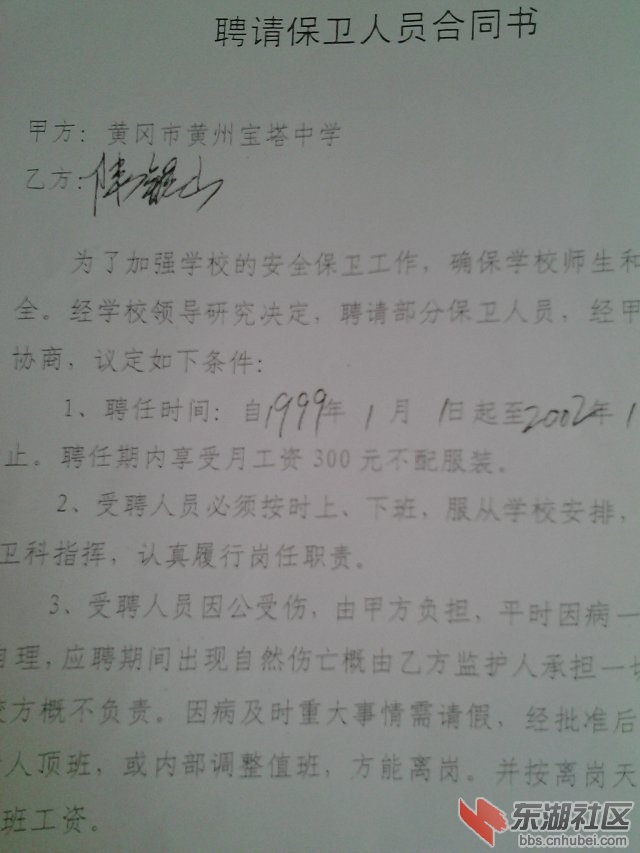 聘请保卫人员合同书
甲方：黄冈市黄州宝塔中学
乙方：陈山
为了加强学校的安全保卫工作，确保学校师生和
全。经学校领导研究决定，聘请部分保卫人员，经甲
协商，议定如下条件：
1、聘任时间：自1999年1月1日起至2002年1
止。聘任期内享受月工资300元不配服装。
2、受聘人员必须按时上、下班，服从学校安排，
卫科指挥，认真履行岗任职责。
3、受聘人员因公受伤，由甲方负担，平时因病一
自理，应聘期间出现自然伤亡概由乙方监护人承担一切
校方概不负责。因病及时重大事情需请假，经批准后
人顶班，或内部调整值班，方能离岗。并按离岗天
班工资。
东湖社区
bbs.cnhubei.com